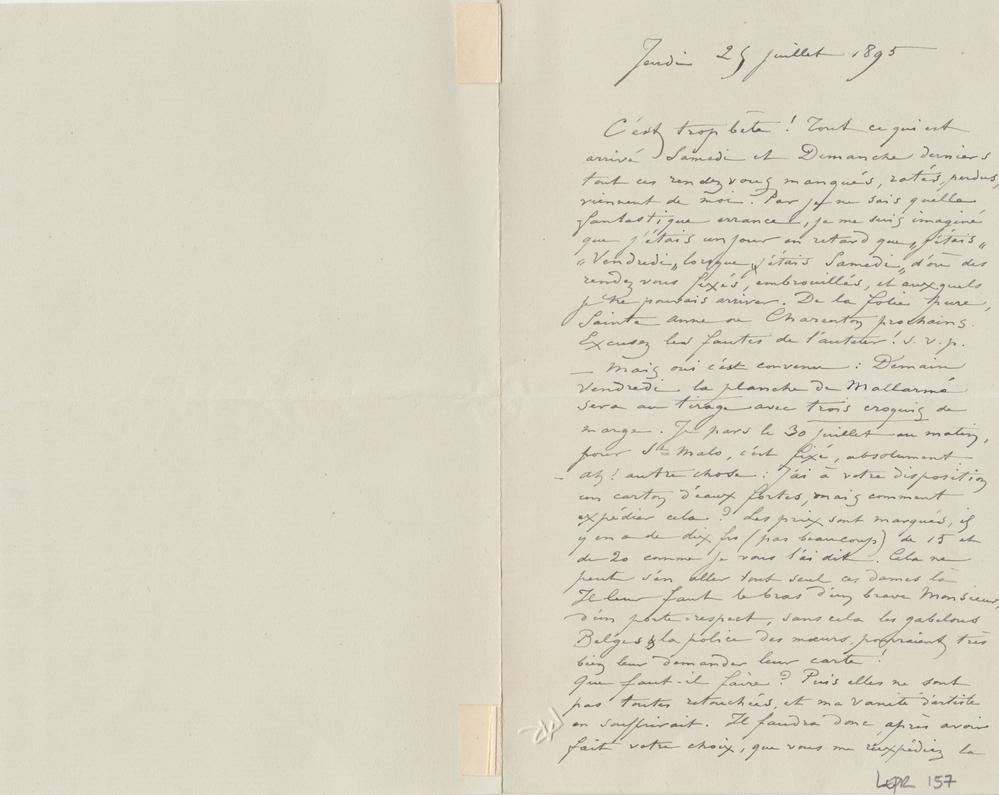 Jeudi 25 juillet 1895
C'est trop bête ! Tout ce qui est
arrivé Samedi et Dimanche derniers
tout ces rendez vous manqués, ratés, perdus,
viennent de moi. Par je ne sais quelle
fantastique errance, je me suis imaginé
que j'étais un jour en retard que „j'étais"
"Vendredi„ lorsque j'étais Samedi„ d'où des
rendez vous fixés, embrouillés, et auxquels
je ne pouvais arriver. De la folie pure,
Sainte anne ou Charenton prochains.
Excusez les fautes de l'auteur ! s.v.p.
— Mais oui c'est convenu : Demain
Vendredi la planche de Mallarmé
sera au tirage avec trois croquis de
marge. Je pars le 30 juillet au matin,
pour St Malo, c'est fixé, absolument
— ah ! autre chose : j'ai à votre disposition
un carton d'eaux fortes, mais comment
expédier cela ? Les prix sont marqués, il
y en a de dix frs (pas beaucoup) de 15 et
de 20 comme je vous l'ai dit. Cela ne
peut s'en aller tout seul ces dames là
Il leur faut le bras d'un brave Monsieur,
d'un porte-respect, sans cela les gabelous
Belges & la police des mœurs pourraient très
bien leur demander leur carte !
Que faut-il faire ? Puis elles ne sont
pas toutes retouchées, et ma vanité d'artiste
en souffrirait. Il faudra donc, après avoir
fait votre choix, que vous me réexpédiez la
FR
157